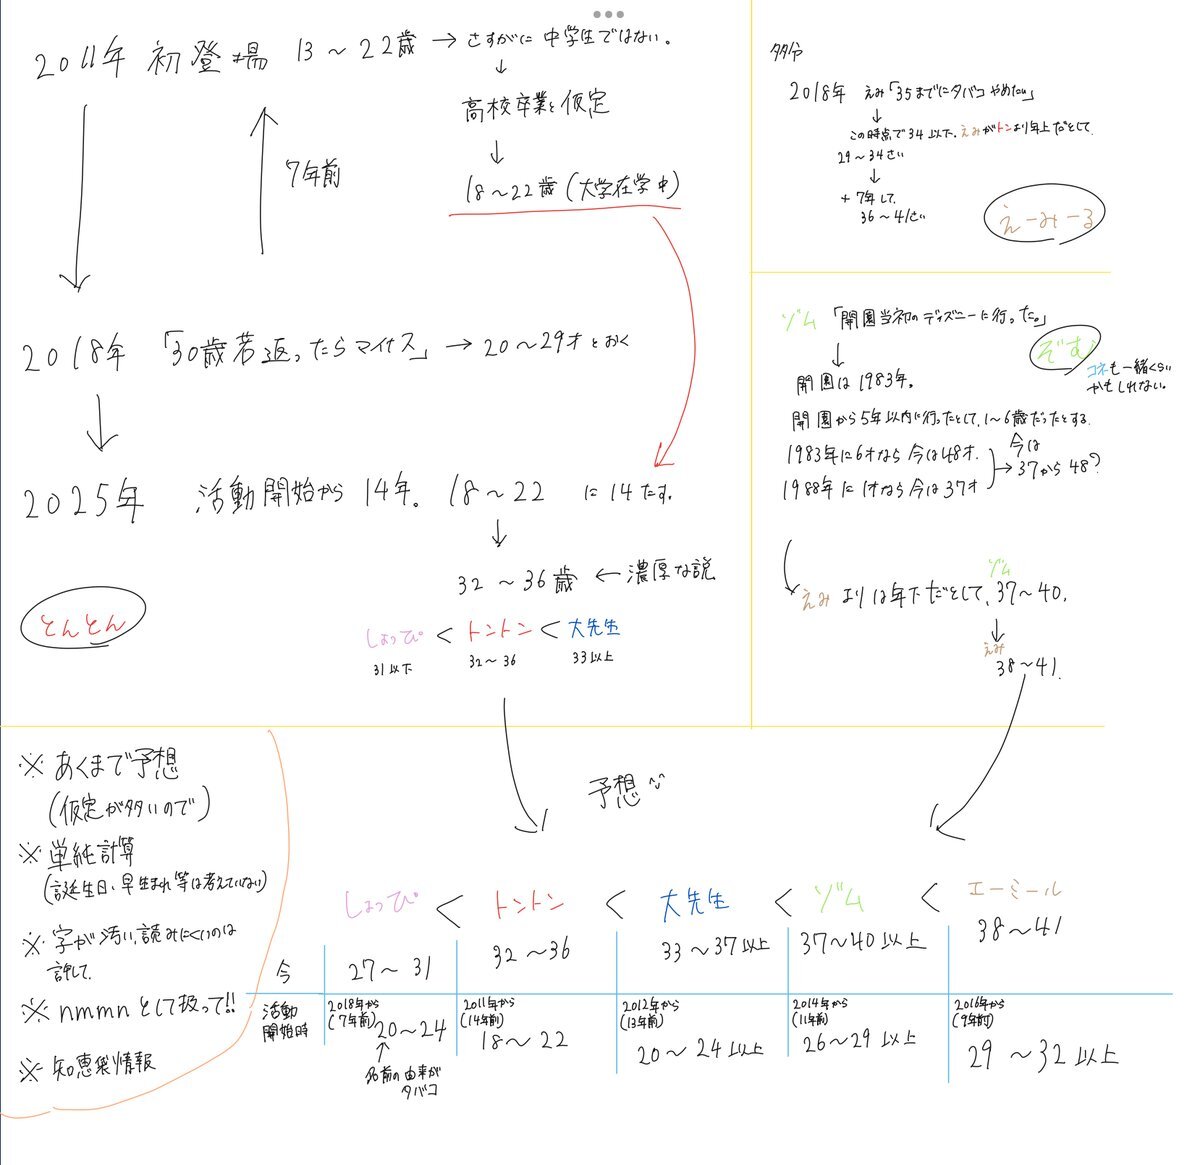 2011年 初登場 13～22歳 → さすがに中学生ではない。
↓
高校卒業と仮定
↓
18～22歳(大学在学中)
7年前
2018年 「30歳若返ったらマイナス」 → 20～29才とおく
2025年 活動開始から14年。 18～22 に14たす。
↓
32～36歳 ← 濃厚な説
とんとん
しょっぴ < トントン < 大先生
31以下 32～36 33以上
多分
2018年 えみ「35までにタバコやめたい」
↓
この時点で34以下。えみがトンより年上だとして、
29～34さい
↓
+7年して、
36～41さい
えーみーる
ゾム 「開園当初のディズニーに行った。」
ぞむ
コネも一緒くらい
かもしれない。
↓
開園は1983年。
開園から5年以内に行ったとして、1～6歳だったとする。
1983年に6才なら今は48才。
1988年に1才なら今は37才
今は
→37から48?
ゾム
えみ よりは年下だとして、37～40。
↓
えみ
38～41.
※あくまで予想
(仮定が多いので)
※単純計算
(誕生日、早生まれ等は考えていない)
※字が汚い、読みにくいのは
許して。
※nmmnとして扱って!!
※知恵袋情報
予想
しょっぴ < トントン < 大先生 < ゾム < エーミール
今 27～31 32～36 33～37以上 37～40以上 38～41
活動
開始時
2018年から
(7年前)
20～24
↑
名前の由来が
タバコ
2011年から
(14年前)
18～22
2012年から
(13年前)
20～24以上
2014年から
(11年前)
26～29以上
2016年から
(9年前)
29～32以上